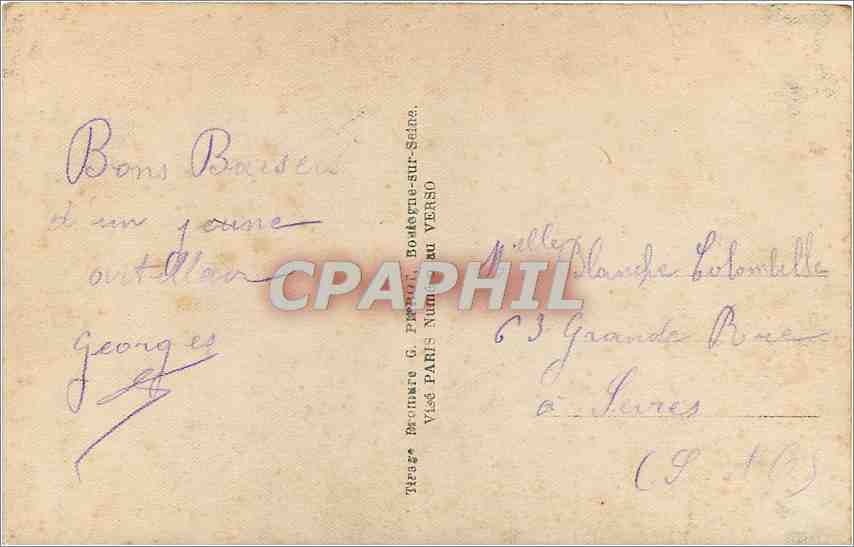 Bons Baisers
d'un jeune
artilleur
Georges
Tirage Bromure G. PERROT, Boulogne-sur-Seine.
Visé PARIS Numéro au VERSO
CPAPHIL
Melle Blanche Colombelle
63 Grande Rue
à Sèvres
(S